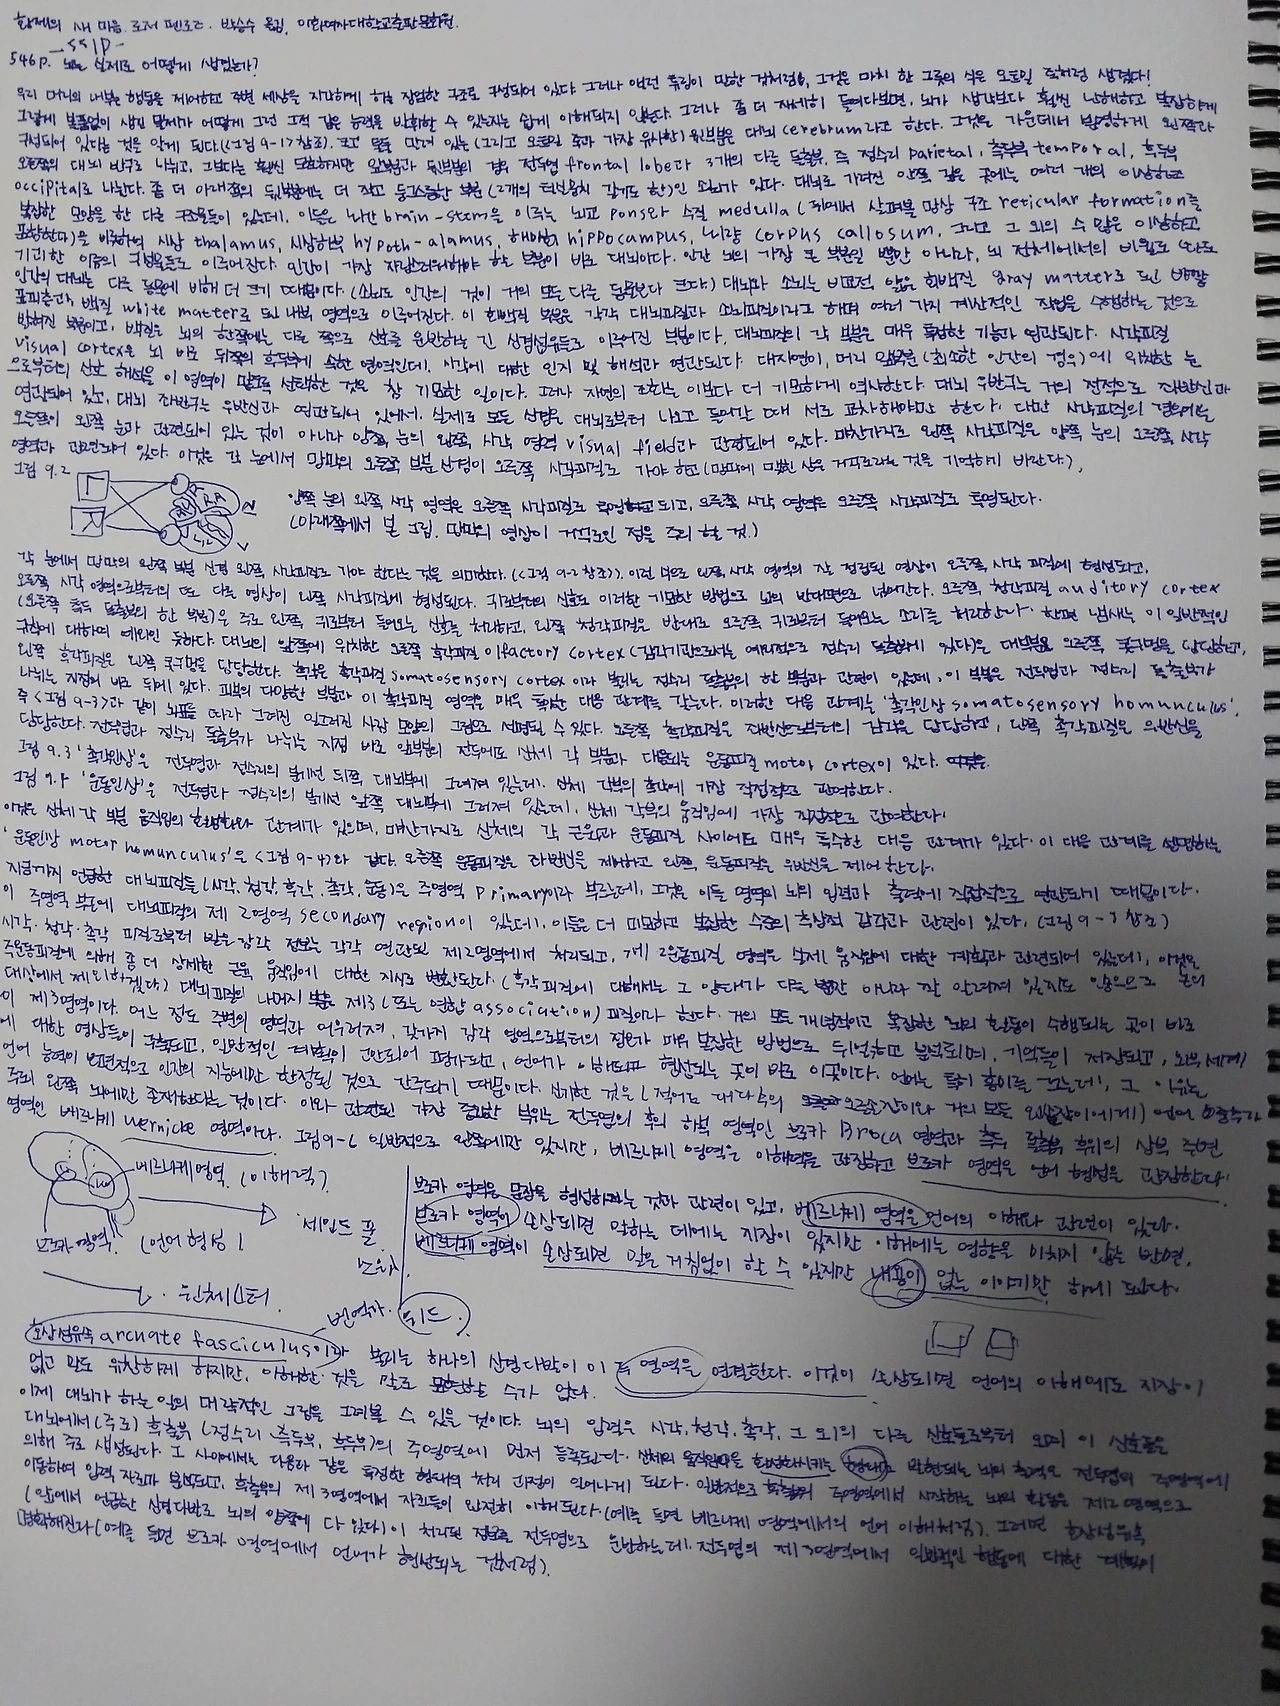 황제의 새 마음. 로저 펜로즈. 박승수 옮김, 이화여자대학교출판문화원.
546p. 뇌는 실제로 어떻게 생겼는가?
우리 머리의 내부는 행동을 제어하고 주변 세상을 지각하게 하는 장엄한 구조로 구성되어 있다. 그러나 앨런 튜링이 말한 것처럼, 그것은 마치 한 그릇의 식은 오트밀 죽처럼 생겼다!
그렇게 볼품없이 생긴 물체가 어떻게 그런 기적 같은 능력을 발휘할 수 있는지는 쉽게 이해되지 않는다. 그러나 좀 더 자세히 들여다보면, 뇌가 생각보다 훨씬 난해하고 복잡하게
구성되어 있다는 것을 알게 된다(<그림 9-1> 참조). 크고 있는 (그리고 오트밀 죽과 가장 유사한) 윗부분은 대뇌 cerebrum라고 한다. 그것은 가운데에서 분명하게 왼쪽과
오른쪽의 대뇌 반구로 나뉘고, 그보다는 훨씬 덜하지만 앞부분과 뒷부분의 경우 전두엽 frontal lobe과 3개의 다른 돌출부, 즉 정수리 parietal, 측두부 temporal, 후두부
occipital로 나뉜다. 좀 더 아래쪽의 뒷부분에는 더 작고 둥그스름한 부분 (2개의 털실뭉치 같기도 한)인 소뇌가 있다. 대뇌로 가려진 안쪽 깊은 곳에는 여러 개의 이상하고
복잡한 모양을 한 다른 구조물들이 있는데, 이들은 뇌간 brain-stem을 이루는 뇌교 pons와 수질 medulla (뒤에서 살펴볼 망상 구조 reticular formation을
포함한다)을 비롯하여 시상 thalamus, 시상하부 hypoth-alamus, 해마 hippocampus, 뇌량 corpus callosum, 그리고 그 외의 수 많은 이상하고
기괴한 이름의 구성물들로 이루어진다. 인간이 가장 자랑스러워해야 할 부분이 바로 대뇌이다. 인간 뇌의 가장 큰 부분일 뿐만 아니라, 뇌 전체에서의 비율로 봐도
인간의 대뇌는 다른 동물에 비해 더 크기 때문이다. (소뇌도 인간의 것이 거의 모든 다른 동물보다 크다) 대뇌와 소뇌는 비교적 얇은 회백질 gray matter로 된 바깥
표피층과, 백질 white matter로 된 내부 영역으로 이루어진다. 이 회백질 부분은 각각 대뇌피질과 소뇌피질이라고 하며 여러 가지 계산적인 작업을 수행하는 것으로
밝혀진 부분이고, 백질은 뇌의 한쪽에서 다른 쪽으로 신호를 운반하는 긴 신경섬유들로 이루어진 부분이다. 대뇌피질의 각 부분은 매우 특정한 기능과 연관된다. 시각피질
visual cortex은 뇌 바로 뒤쪽의 후두부에 속한 영역인데, 시각에 대한 인지 및 해석과 연관된다. 대자연이, 머리 앞쪽(최소한 인간의 경우)에 위치한 눈
으로부터의 신호 해석을 이 영역이 맡도록 선택한 것은 참 기묘한 일이다. 그러나 자연의 조화는 이보다 더 기묘하게 역사한다. 대뇌 우반구는 거의 전적으로 좌반신과
연관되어 있고, 대뇌 좌반구는 우반신과 연관되어 있어서, 실제로 모든 신경은 대뇌로부터 나오고 들어갈 때 서로 교차해야만 한다. 다만 시각피질의 경우에는
오른쪽이 왼쪽 눈과 관련되어 있는 것이 아니라 양쪽 눈의 왼쪽 시각 영역 visual field과 관련되어 있다. 마찬가지로 왼쪽 시각피질은 양쪽 눈의 오른쪽 시각
영역과 관련되어 있다. 이것은 각 눈에서 망막의 오른쪽 부분 신경이 오른쪽 시각피질로 가야 하고(망막에 맺힌 상은 거꾸로라는 것을 기억하기 바란다.),
그림 9.2
양쪽 눈의 왼쪽 시각 영역은 오른쪽 시각피질로 되고, 오른쪽 시각 영역은 오른쪽 시각피질로 투영된다.
(아래쪽에서 본 그림. 망막의 영상이 거꾸로인 점을 주의 할 것.)
각 눈에서 망막의 왼쪽 부분 신경 왼쪽 시각피질로 가야 한다는 것을 의미한다. (<그림 9-2 참조>). 이런 식으로 왼쪽 시각 영역의 잘 정립된 영상이 오른쪽 시각 피질에 형성되고,
오른쪽 시각 영역으로부터의 또 다른 영상이 왼쪽 시각피질에 형성된다. 귀로부터의 신호도 이러한 기묘한 방법으로 뇌의 반대편으로 넘어간다. 오른쪽 청각피질 auditory cortex
(오른쪽 측두 돌출부의 한 부분)은 주로 왼쪽 귀로부터 들어오는 신호를 처리하고, 왼쪽 청각피질은 반대로 오른쪽 귀로부터 들어오는 소리를 처리한다. 한편 냄새는 이 일반적인
규칙에 대하여 예외인 듯하다. 대뇌의 앞쪽에 위치한 오른쪽 후각피질 olfactory cortex(감각기관으로서는 예외적으로 전두엽 돌출부에 있다)은 대부분 오른쪽 콧구멍을 담당하고,
왼쪽 후각피질은 왼쪽 콧구멍을 담당한다. 촉각은 촉각피질 somatosensory cortex이라 불리는 정수리 돌출부의 한 부분과 관련이 있는데, 이 부분은 전두엽과 정수리 돌출부가
나뉘는 지점의 바로 뒤에 있다. 피부의 다양한 부분과 이 촉각피질 영역은 매우 특수한 대응 관계를 갖는다. 이러한 대응 관계는 '촉각인상 somatosensory homunculus',
즉 <그림 9-3>과 같이 뇌피질을 따라 그려진 일그러진 사람 모양의 그림으로 설명될 수 있다. 오른쪽 촉각피질은 좌반신으로부터의 감각을 담당하고, 왼쪽 촉각피질은 우반신을
담당한다. 전두엽과 정수리 돌출부가 나뉘는 지점 바로 앞부분의 전두에도 신체 각 부분과 대응되는 운동피질 motor cortex이 있다.
그림 9.3 '촉각인상'은 전두엽과 정수리의 분계선 뒤쪽 대뇌부에 그려져 있는데, 신체 각부의 촉각에 가장 직접적으로 관여한다.
그림 9.4 '운동인상'은 전두엽과 정수리의 분계선 앞쪽 대뇌부에 그려져 있는데, 신체 각부의 움직임에 가장 직접적으로 관여한다.
이것은 신체 각 부분 움직임의 활성화와 관계가 있으며, 마찬가지로 신체의 각 근육과 운동피질 사이에도 매우 특수한 대응 관계가 있다. 이 대응 관계를 설명하는
'운동인상 motor homunculus'은 <그림 9-4>와 같다. 오른쪽 운동피질은 좌반신을 제어하고 왼쪽 운동피질은 우반신을 제어한다.
지금까지 언급한 대뇌피질들(시각, 청각, 후각, 촉각, 운동)은 주영역 primary이라 부르는데, 그것은 이들 영역이 뇌의 입력과 출력에 직접적으로 연관되기 때문이다.
이 주영역 부근에 대뇌피질의 제 2영역 secondary region이 있는데, 이들은 더 미묘하고 복잡한 수준의 추상적 감각과 관련이 있다. (그림 9-5 참조)
시각·청각·촉각 피질로부터 받은 감각 정보는 각각 연관된 제2영역에서 처리되고, 제 2운동피질 영역은 실제 움직임에 대한 계획과 관련되어 있는데, 이것은
주운동피질에 의해 좀 더 상세한 근육 움직임에 대한 지시로 변환된다. (후각피질에 대해서는 그 양태가 다를 뿐만 아니라 잘 알려져 있지도 않으므로 논의
대상에서 제외하겠다) 대뇌피질의 나머지 부분은 제3(또는 연합 association)피질이라 한다. 거의 모든 개념적이고 복잡한 뇌의 활동이 수행되는 곳이 바로
이 제3영역이다. 어느 정도 주변의 영역과 어우러져, 갖가지 감각 영역으로부터의 정보가 매우 복잡한 방법으로 뒤얽히고 분석되며, 기억들이 저장되고, 외부 세계
에 대한 영상들이 구축되고, 일반적인 계획이 고안되어 평가되고, 언어가 이해되고 형성되는 곳이 바로 이곳이다. 언어는 특히 흥미를 끄는데, 그 이유는
언어 능력이 보편적으로 인간의 지능에만 한정된 것으로 간주되기 때문이다. 신기한 것은 (적어도 대다수의 오른손잡이와 거의 모든 왼손잡이에게) 언어 중추가
주로 왼쪽 뇌에만 존재한다는 것이다. 이와 관련된 가장 중요한 부위는 전두엽의 후의 하쪽 영역인 브로카 Broca 영역과 측두 돌출부 후위의 상부 주변
영역인 베르니케 Wernicke 영역이다. 그림 9-6 일반적으로 왼쪽에만 있지만, 베르니케 영역은 이해력을 관장하고 브로카 영역은 언어 형성을 관장한다.
베르니케 영역. (이해력)
브로카 영역. (언어 형성)
브로카 영역은 문장을 형성하는 것과 관련이 있고, 베르니케 영역은 언어의 이해와 관련이 있다.
브로카 영역이 손상되면 말하는 데에는 지장이 있지만 이해에는 영향을 미치지 않는 반면,
베르니케 영역이 손상되면 말은 거침없이 할 수 있지만 내용이 없는 이야기만 하게 된다.
번역가.
호상섬유속 arcuate fasciculus이라 불리는 하나의 신경다발이 이 두 영역을 연결한다. 이것이 손상되면 언어의 이해에도 지장이
없고 말도 유창하게 하지만, 이해한 것을 말로 표현할 수가 없다.
이제 대뇌가 하는 일의 대략적인 그림을 그려볼 수 있을 것이다. 뇌의 입력은 시각, 청각, 촉각, 그 외의 다른 신호들로부터 오며 이 신호들은
대뇌에서(주로) 후돌출부 (정수리 측두부, 후두부)의 주영역에 먼저 등록된다. 신체의 움직임을 활성화시키는 형태로 발현되는 뇌의 출력은 전두엽의 주영역에
의해 주로 생성된다. 그 사이에서는 다음과 같은 특정한 형태의 처리 과정이 일어나게 된다. 일반적으로 주영역에서 시작하는 뇌의 활동은 제2영역으로
이동하여 입력 자료가 분석되고, 후출부의 제 3영역에서 자료들이 완전히 이해된다. (예를 들면 베르니케 영역에서의 언어 이해처럼). 그러면 호상섬유속
(앞에서 언급한 신경다발로 뇌의 양쪽에 다 있다)이 처리된 정보를 전두엽으로 운반하는데, 전두엽의 제3영역에서 일반적인 행동에 대한 계획이
명확해진다(예를 들면 브로카 영역에서 언어가 형성되는 것처럼).